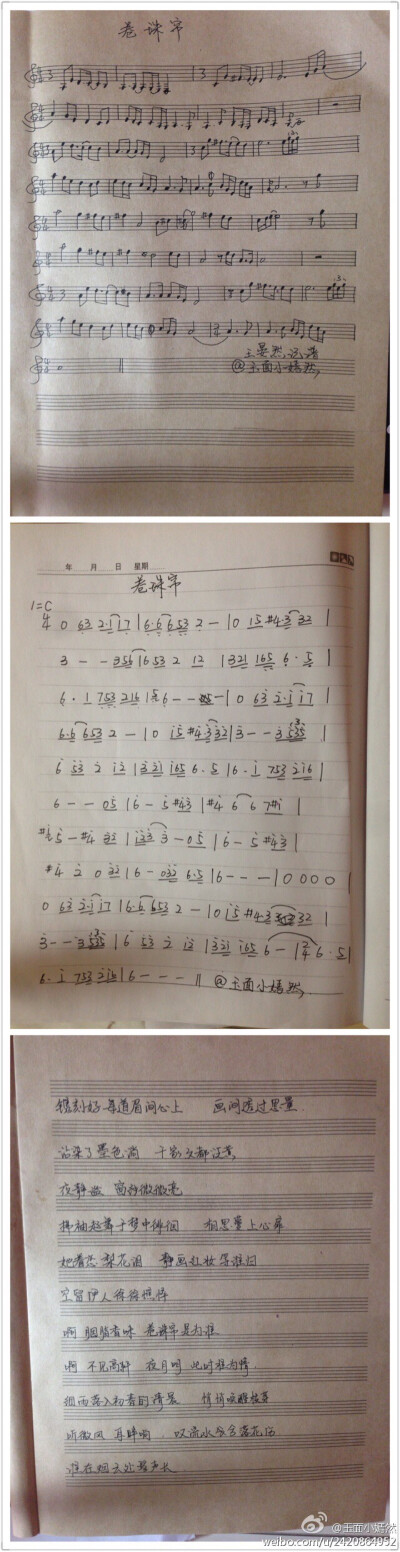 卷珠帘
王晏然 记谱
@玉面小嫣然
年 月 日 星期
卷珠帘
1=C
4/4 0 63 2·1 17 | 6·6 653 2 - | 0 15 #4·3 32 |
3 - - 356 | 1653 2 12 | 321 165 6·5 |
6·1 753 216 |
6·6 653 2 - | 0 15 #4·3 32 | 3 - - 3 535
6 53 2 12 | 321 165 6·5 | 6·1 753 216 |
6 - - 05 | 6 - 5 #43 | #4 6 6 7#1 |
#4 2 0 32 | 6 - 032 6·5 | 6 - - - | 0 0 0 0 |
0 63 2·1 17 | 6·6 653 2 - | 0 15 #4·3
3 - - 3 535 | 6 53 2 12 | 321 165 6 - | 2/4 6·5 |
6·1 753 216 | 6 - - - || @玉面小嫣然
镌刻好 每道眉间心上 画间透过思量
沾染了墨色淌 千家文都泛黄
夜静谧 窗纱微微亮
拂袖起舞于梦中徘徊 相思蔓上心扉
她眷恋 梨花泪 静画红妆等谁归
空留伊人徐徐憔悴
啊 胭脂香味 卷珠帘是为谁
啊 不见高轩 夜月明 此时难为情
细雨落入初春的清晨 悄悄唤醒枝芽
听微风 耳畔响 叹流水兮落花伤
谁在烟云处琴声长
@玉面小嫣然
weibo.com/u/2420864952